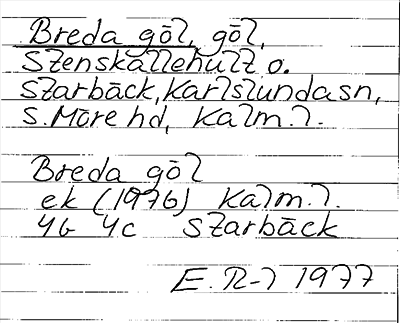 Breda göl, göl,
Stenskallehult o.
Starbäck, Karlslundasn,
S. Möre hd, Kalm. l.
Breda göl
ek (1976) Kalm. l.
4G 4c Starbäck
E. R-l 1977